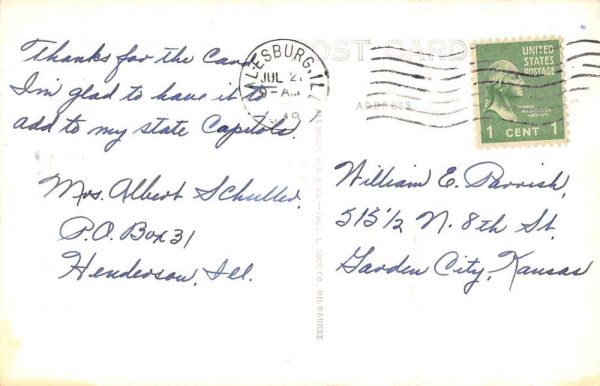 Thanks for the Card.
I'm glad to have it to
add to my state Capitols.
Mrs. Albert Schuller.
P.O. Box 31
Henderson, Ill.
POST CARD
ADDRESS
ALESBURG, IL
JUL 21
9-AM
UNITED
STATES
POSTAGE
1 CENT 1
William E. Parrish,
515 1/2 N. 8th St.
Garden City, Kansas
CO., MILWAUKEE